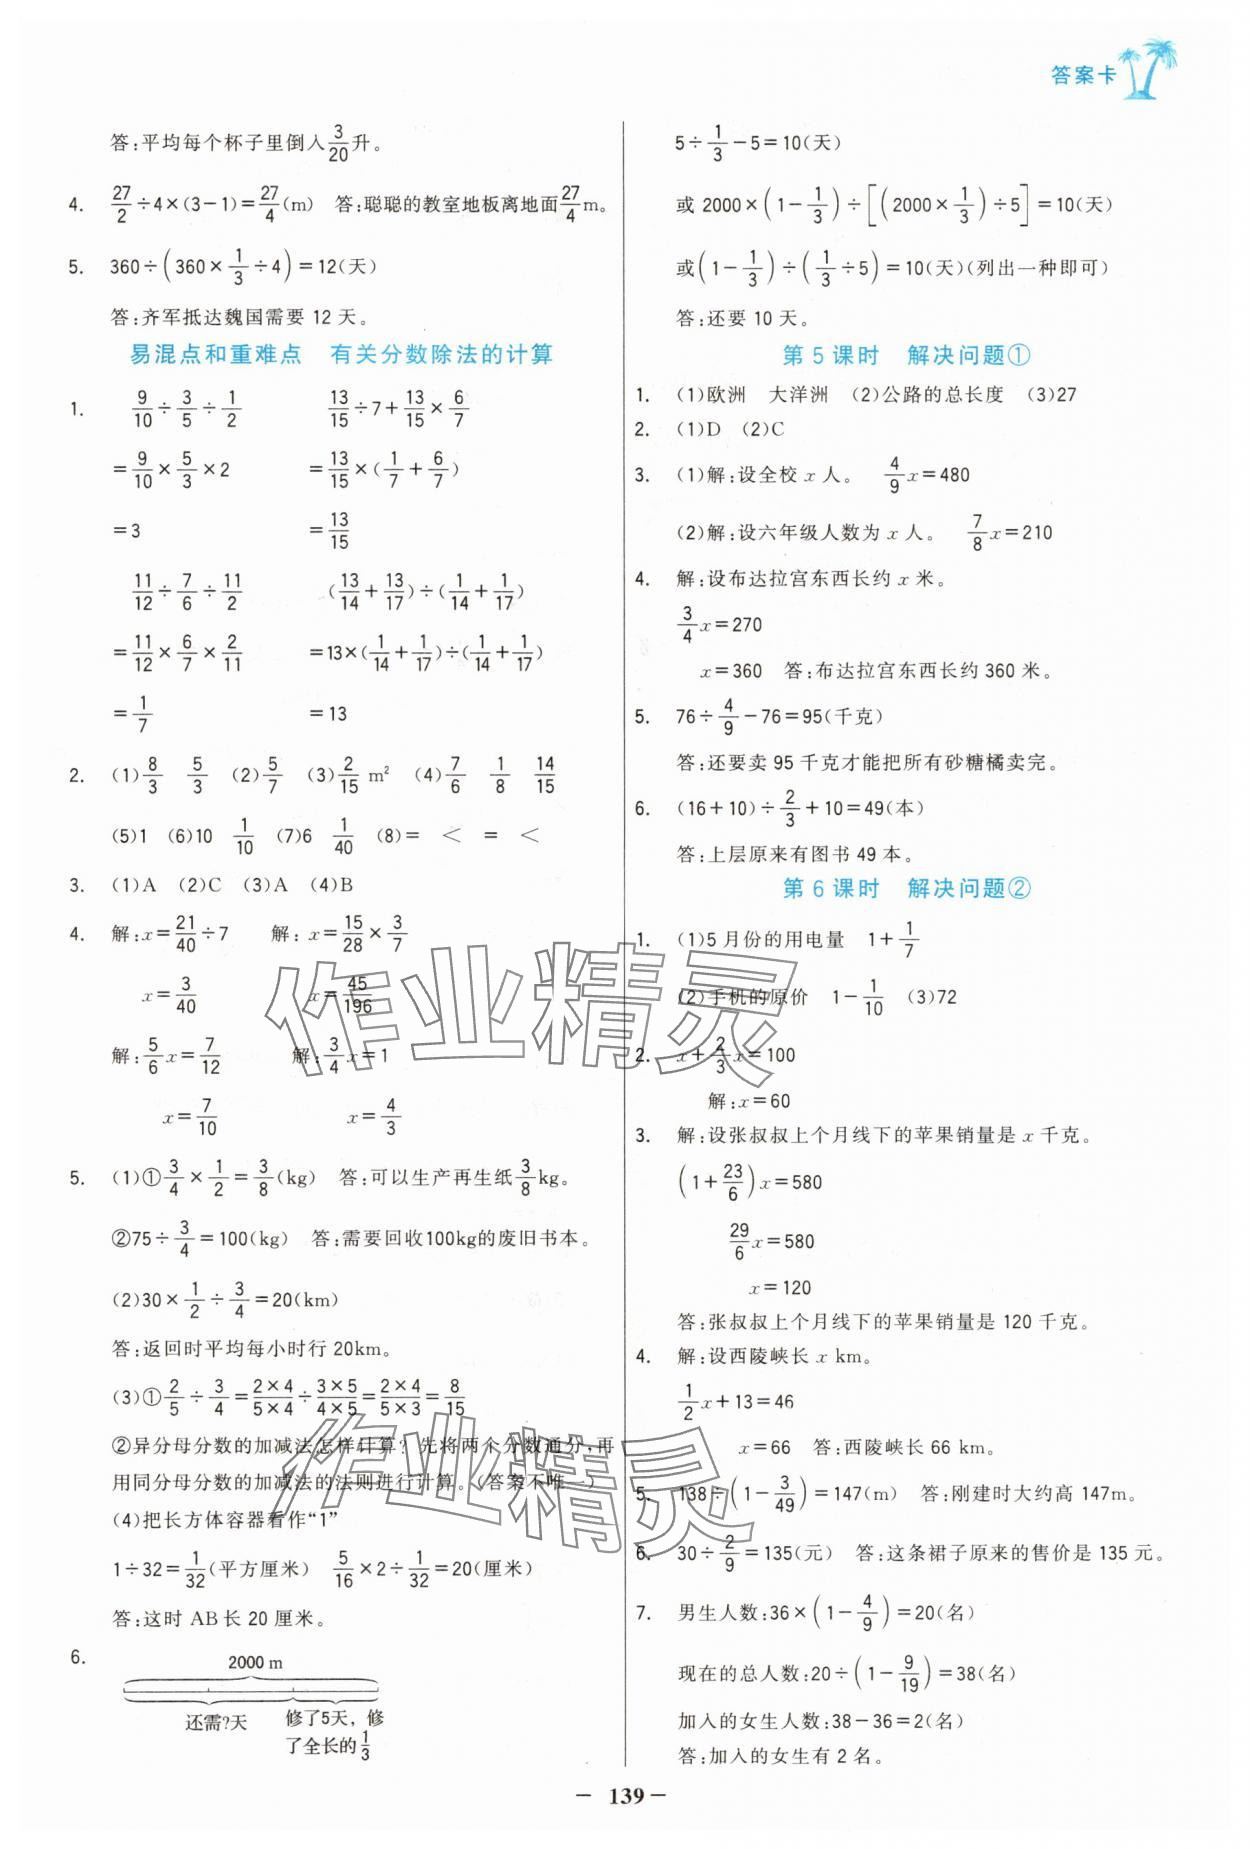 答案卡
答:平均每个杯子里倒入3/20升。
4. 27/2÷4×(3-1)=27/4(m) 答:聪聪的教室地板离地面27/4m。
5. 360÷(360×1/3÷4)=12(天)
答:齐军抵达魏国需要 12 天。
易混点和重难点 有关分数除法的计算
1. 9/10÷3/5÷1/2 13/15÷7+13/15×6/7
=9/10×5/3×2 =13/15×(1/7+6/7)
=3 =13/15
11/12÷7/6÷11/2 (13/14+13/17)÷(1/14+1/17)
=11/12×6/7×2/11 =13×(1/14+1/17)÷(1/14+1/17)
=1/7 =13
2. (1)8/3 5/3 (2)5/7 (3)2/15 m² (4)7/6 1/8 14/15
(5)1 (6)10 1/10 (7)6 1/40 (8)= < = <
3. (1)A (2)C (3)A (4)B
4. 解:x=21/40÷7 解:x=15/28×3/7
x=3/40 x=45/196
解:5/6x=7/12 解:3/4x=1
x=7/10 x=4/3
5. (1)①3/4×1/2=3/8(kg) 答:可以生产再生纸3/8kg。
②75÷3/4=100(kg) 答:需要回收100kg的废旧书本。
(2)30×1/2÷3/4=20(km)
答:返回时平均每小时行 20km。
(3)①2/5÷3/4=2×4/5×4÷3×5/4×5=2×4/5×3=8/15
②异分母分数的加减法怎样计算?先将两个分数通分,再
用同分母分数的加减法的法则进行计算。(答案不唯一)
(4)把长方体容器看作“1”
1÷32=1/32(平方厘米) 5/16×2÷1/32=20(厘米)
答:这时 AB 长 20 厘米。
6.
2000 m
还需?天 修了5天,修
了全长的1/3
5÷1/3-5=10(天)
或 2000×(1-1/3)÷[(2000×1/3)÷5]=10(天)
或(1-1/3)÷(1/3÷5)=10(天)(列出一种即可)
答:还要 10 天。
第 5 课时 解决问题①
1. (1)欧洲 大洋洲 (2)公路的总长度 (3)27
2. (1)D (2)C
3. (1)解:设全校 x 人。 4/9x=480
(2)解:设六年级人数为 x 人。 7/8x=210
4. 解:设布达拉宫东西长约 x 米。
3/4x=270
x=360 答:布达拉宫东西长约 360 米。
5. 76÷4/9-76=95(千克)
答:还要卖 95 千克才能把所有砂糖橘卖完。
6. (16+10)÷2/3+10=49(本)
答:上层原来有图书 49 本。
第 6 课时 解决问题②
1. (1)5 月份的用电量 1+1/7
(2)手机的原价 1-1/10 (3)72
2. x+2/3x=100
解:x=60
3. 解:设张叔叔上个月线下的苹果销量是 x 千克。
(1+23/6)x=580
29/6x=580
x=120
答:张叔叔上个月线下的苹果销量是 120 千克。
4. 解:设西陵峡长 x km。
1/2x+13=46
x=66 答:西陵峡长 66 km。
5. 138÷(1-3/49)=147(m) 答:刚建时大约高 147m。
6. 30÷2/9=135(元) 答:这条裙子原来的售价是 135 元。
7. 男生人数:36×(1-4/9)=20(名)
现在的总人数:20÷(1-9/19)=38(名)
加入的女生人数:38-36=2(名)
答:加入的女生有 2 名。
作业精灵
作业精灵
- 139 -